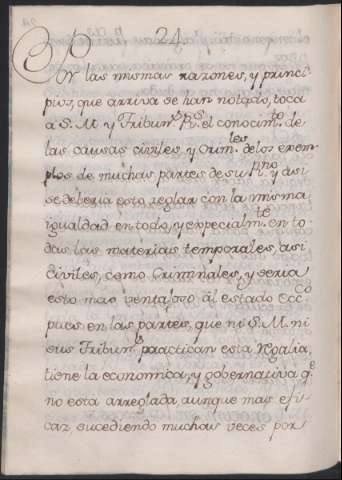 24.
Por las mismas razones, y princi-
pios, que arriva se han notado, toca
a S. M. y Tribun.s R.s el conocim.to de
las causas civiles, y Crim.les de los exem-
plos de muchas partes de su R.no y asi
se deberia esto reglar con la misma
igualdad en todo, y expecialm.te en to-
das las materias temporales, asi
civiles, como Criminales, y seria
esto mas ventajoso al estado Ecc.co
pues en las partes, que ni S. M. ni
sus Tribun.s practican esta Regalia,
tiene la economica, y gobernativa q.e
no está arreglada, aunque mas efi-
caz, sucediendo muchas veces por